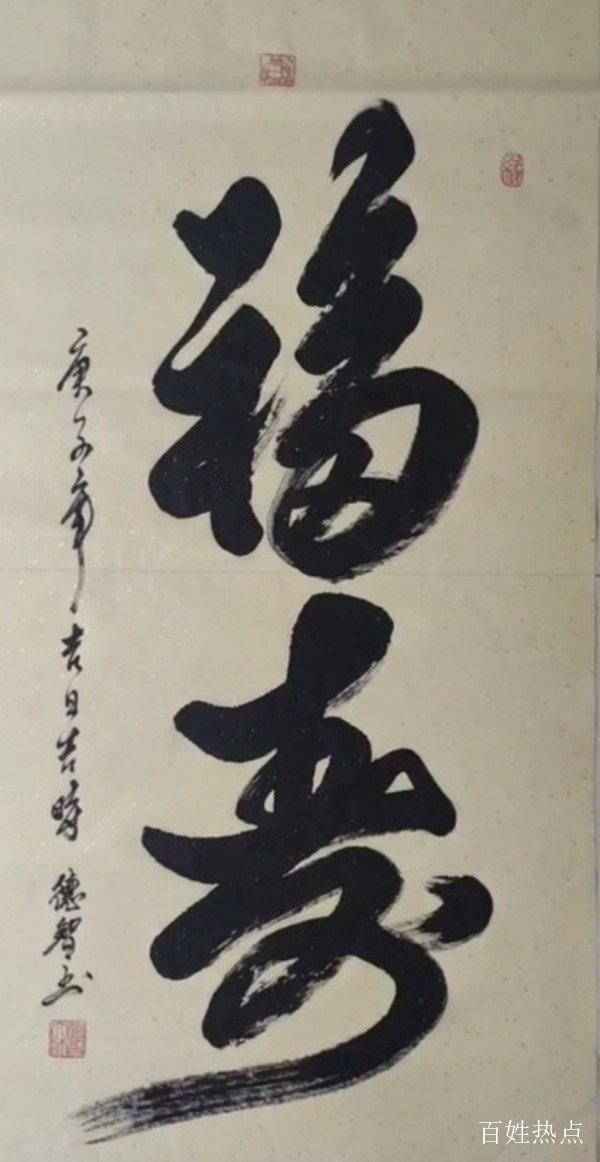 福寿
庚子年吉日吉时 德智书
百姓热点